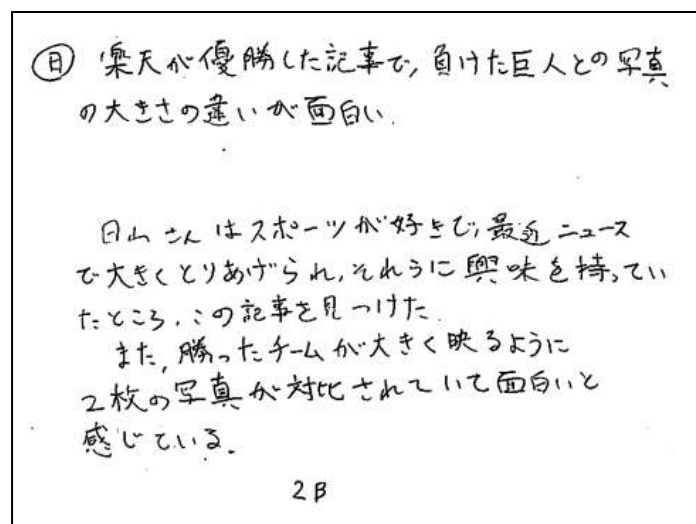 日 楽天が優勝した記事で,負けた巨人との写真
の大きさの違いが面白い.
日山さんはスポーツが好きで,最近ニュース
で大きくとりあげられ,それらに興味を持ってい
たところ,この記事を見つけた.
また,勝ったチームが大きく映るように
2枚の写真が対比されていて面白いと
感じている.
2B